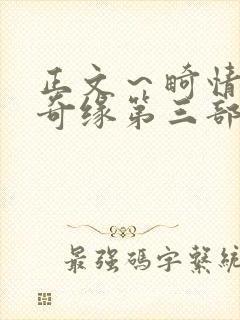 正文～畸情
奇缘第三部
最强码字系统